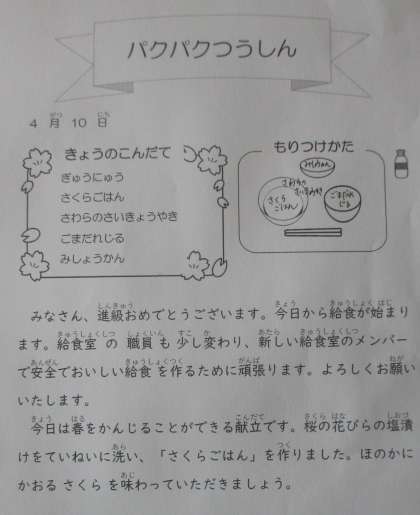 パクパクつうしん
4月10日
きょうのこんだて
ぎゅうにゅう
さくらごはん
さわらのさいきょうやき
ごまだれじる
みしょうかん
もりつけかた
みしょうかん
さわらの
さいきょうやき
さくら
ごはん
ごまだれ
じる
みなさん、進級おめでとうございます。今日から給食が始まり
ます。給食室の職員も少し変わり、新しい給食室のメンバー
で安全でおいしい給食を作るために頑張ります。よろしくお願い
いたします。
今日は春をかんじることができる献立です。桜の花びらの塩漬
けをていねいに洗い、「さくらごはん」を作りました。ほのかに
かおるさくらを味わっていただきましょう。